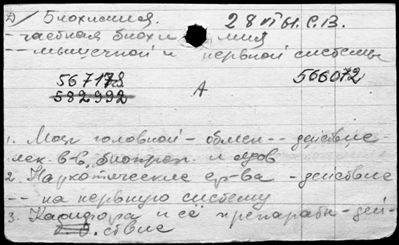 Д/ Биохимия. 28 VI 61. С.В.
- частная биохи мия
-- мышечной и нервной системы
567178 А 566072
582992
1. Мозг головной - обмен -- действие
лек. в-в, биопреп. и ядов
2. Наркотические ср-ва - действие
-- на нервную систему
3. Камфора и её препараты - дей-
ствие